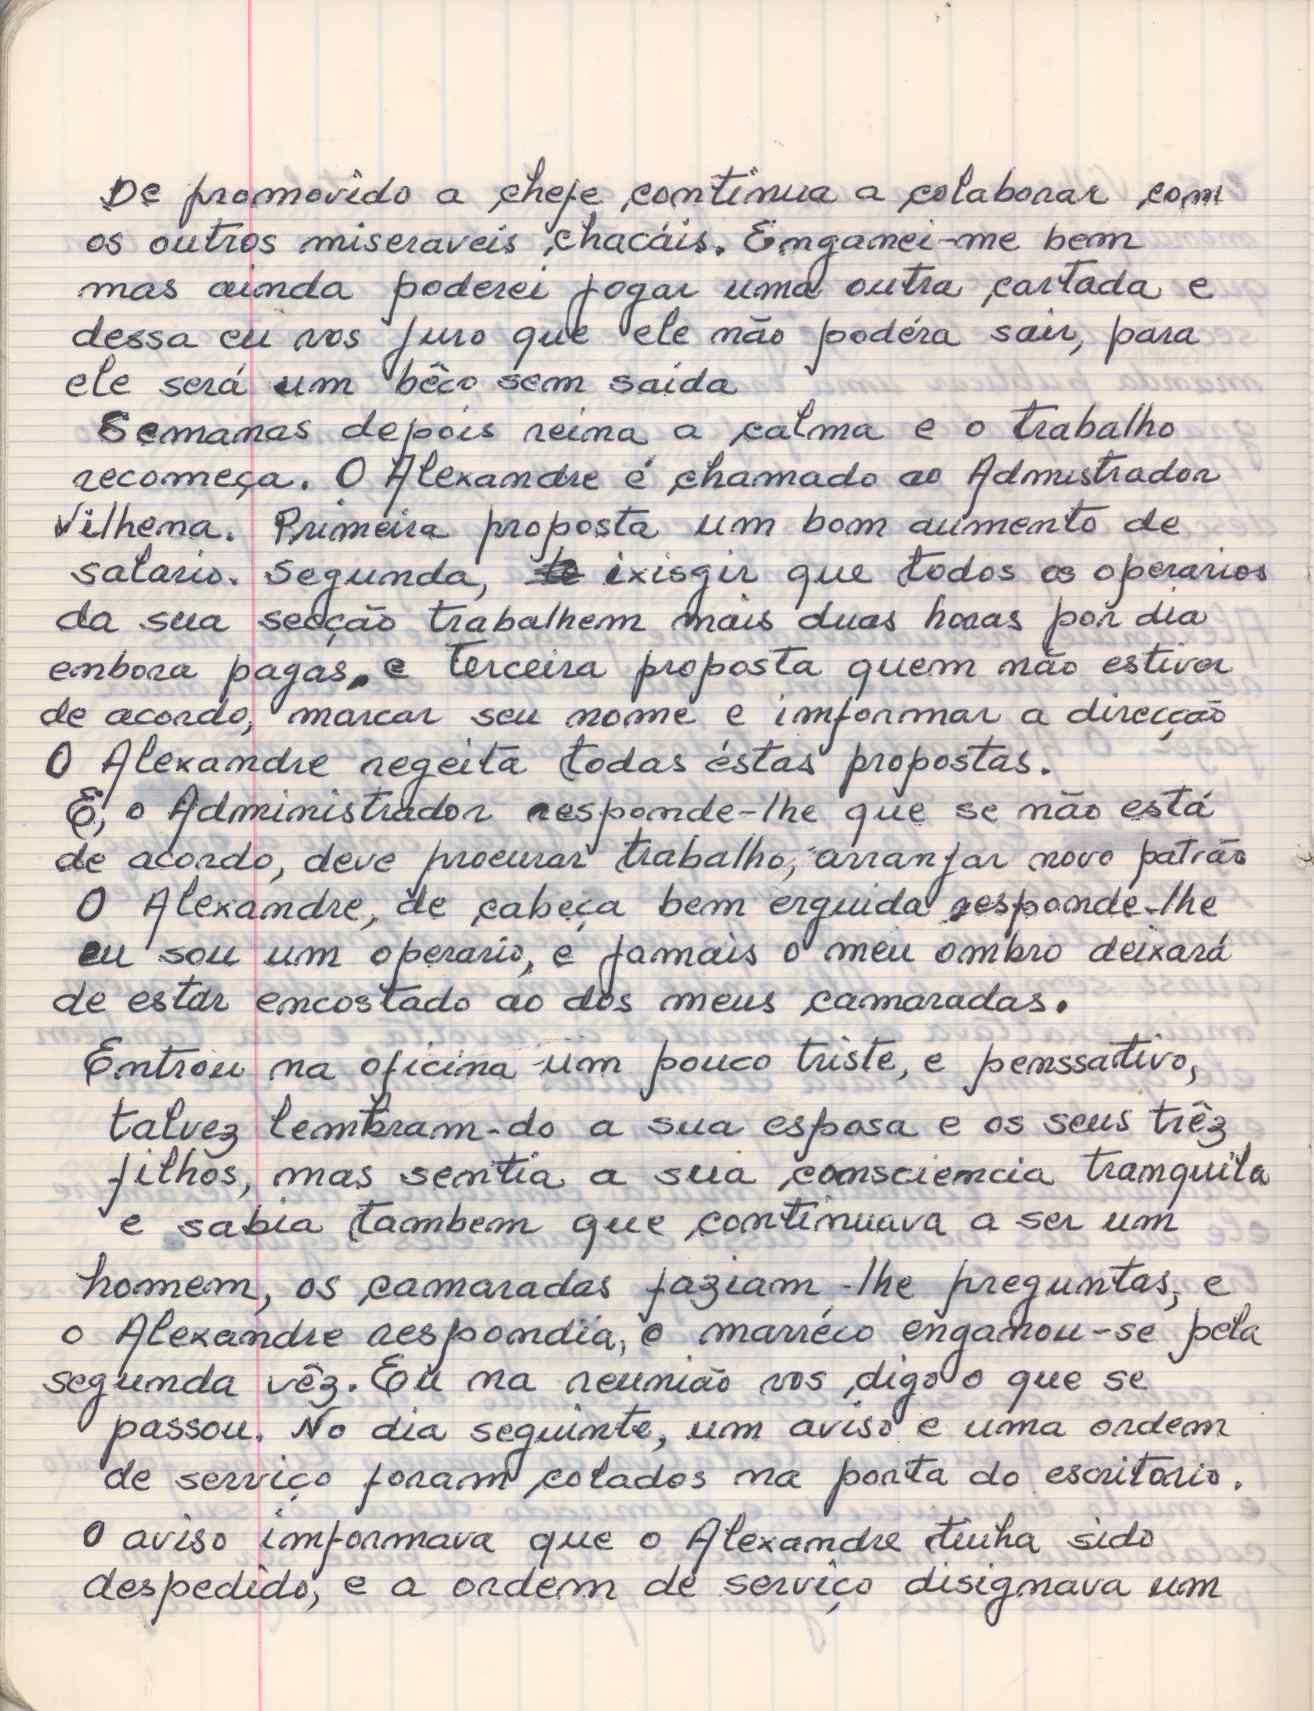 De promovido a chefe continua a colaborar com
os outros miseraveis chacáis. Enganei-me bem
mas ainda poderei jogar uma outra cartada e
dessa eu vos juro que ele não podéra sair, para
ele será um bêco sem saida
Semanas depois reina a calma e o trabalho
recomeça. O Alexandre é chamado ao Admnistrador
Vilhena. Primeira proposta um bom aumento de
salario. Segunda, ixisgir que todos os operarios
da sua secção trabalhem mais duas horas por dia
enbora pagas. e terceira proposta quem não estiver
de acordo, marcar seu nome e imformar a direcção
O Alexandre regeita todas éstas propostas.
E, o Administrador responde-lhe que se não está
de acordo, deve procurar trabalho, arranjar novo patrão
O Alexandre, de cabeça bem erguida responde-lhe
eu sou um operario, e jamais o meu ombro deixará
de estar encostado ao dos meus camaradas.
Entrou na oficina um pouco triste, e penssativo,
talvez lembram-do a sua esposa e os seus trêz
filhos, mas sentia a sua consciencia tranquila
e sabia tambem que continuava a ser um
homem, os camaradas faziam-lhe preguntas, e
o Alexandre respondia, o marréco enganou-se pela
segunda vêz. Eu na reunião vos digo o que se
passou. No dia seguinte, um aviso e uma ordem
de serviço foram colados na porta do escritorio.
O aviso imformava que o Alexandre tinha sido
despedido, e a ordem de serviço disignava um